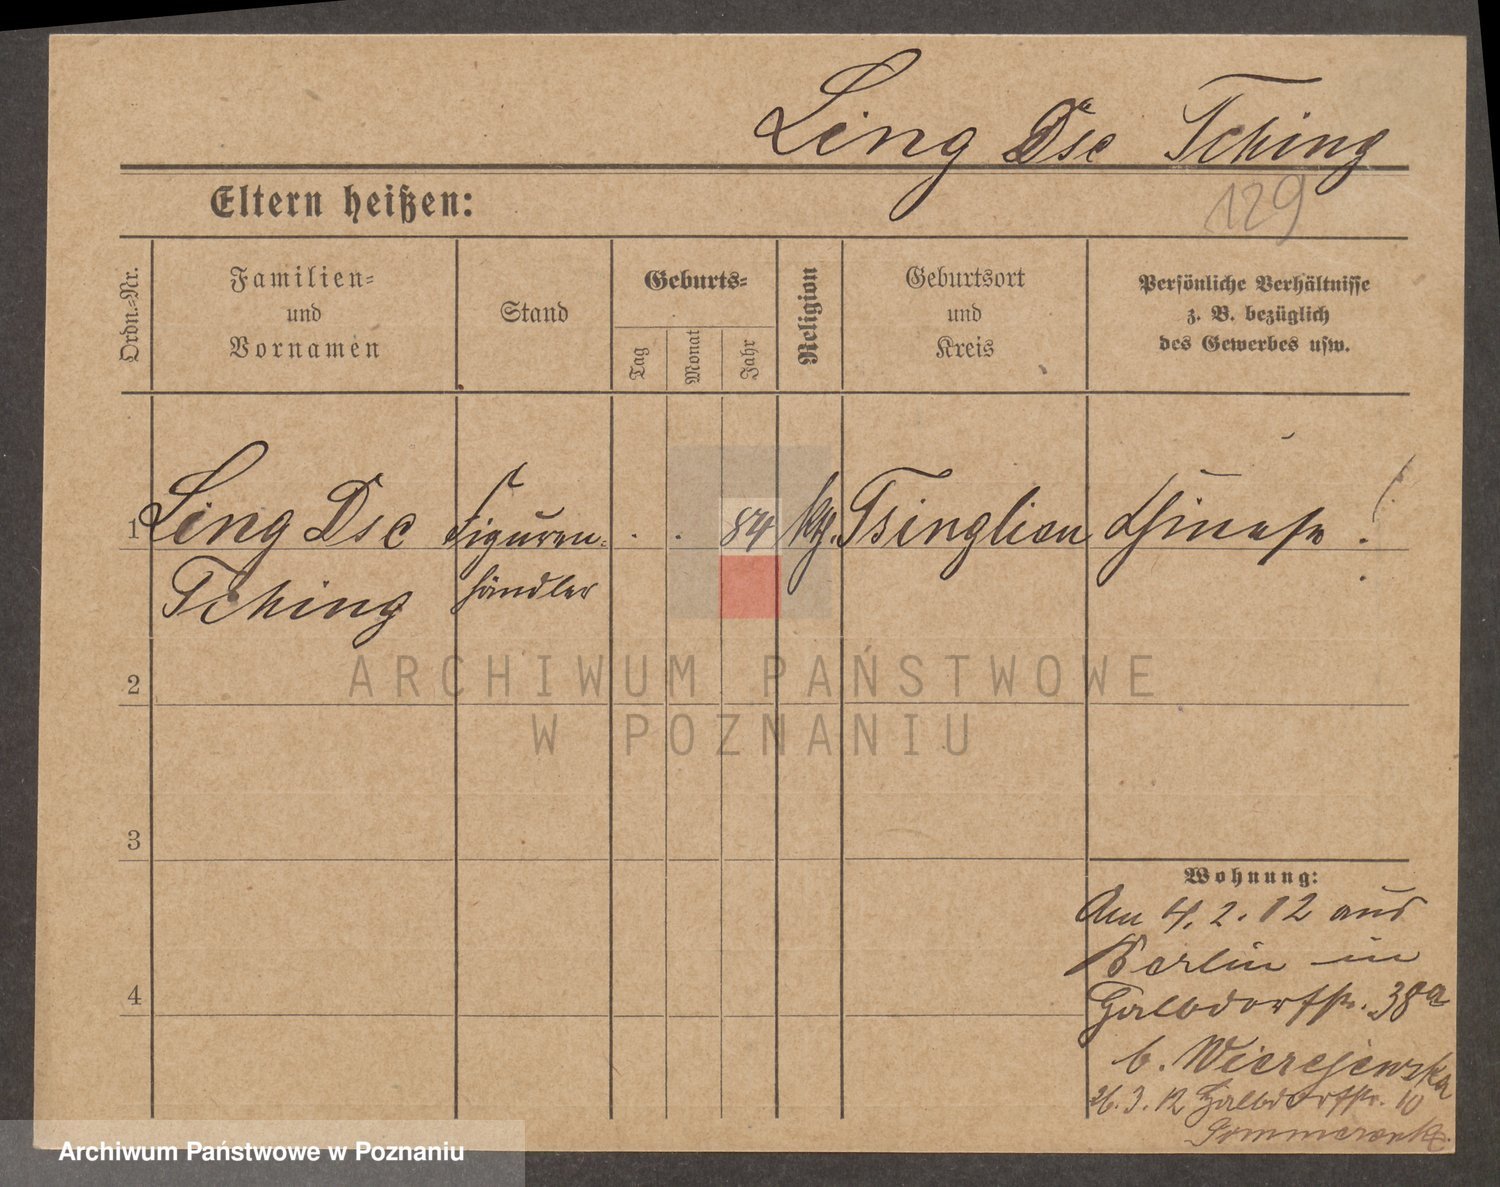 Ling Dsc Tching
129
Eltern heißen:
Ordn.-Nr.
Familien-
und
Vornamen
Stand
Geburts-
Tag
Monat
Jahr
Religion
Geburtsort
und
Kreis
Persönliche Verhältnisse
z. B. bezüglich
des Gewerbes usw.
1
Ling Dsc
Tching
Figuren-
händler
. . 84
kth.
Tsinglian
Chinese !
2
3
4
Wohnung:
Am 4. 2. 12 aus
Berlin in
Halbdorfstr. 38a
b. Wierejewska
26. 3. 12 Halbdorfstr. 10
ARCHIWUM PAŃSTWOWE
W POZNANIU
Archiwum Państwowe w Poznaniu